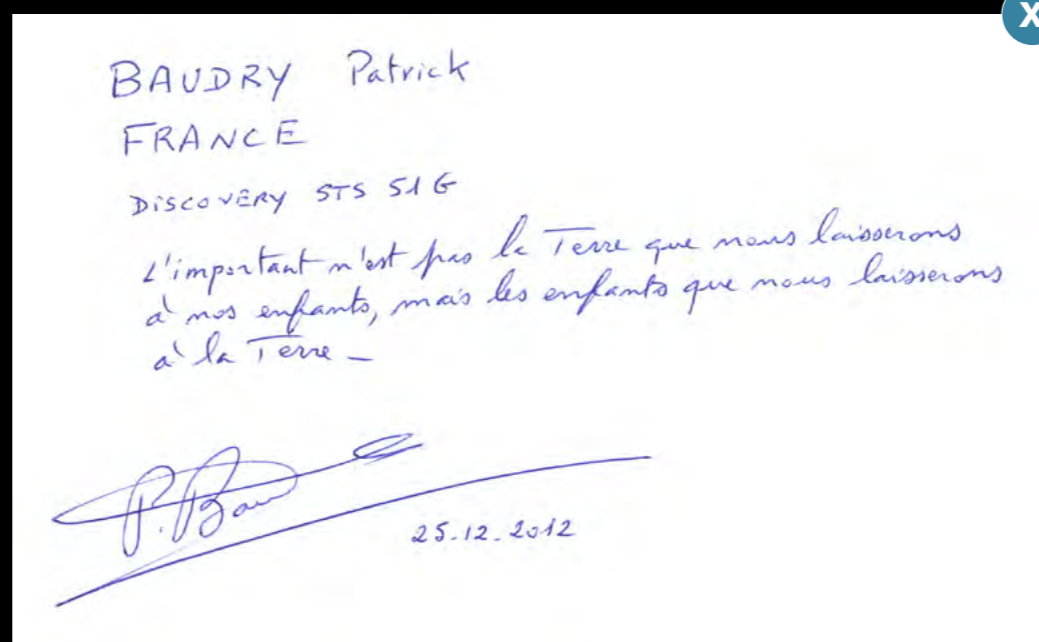 BAUDRY Patrick
FRANCE
DISCOVERY STS 51 G
L'important n'est pas la Terre que nous laisserons
à nos enfants, mais les enfants que nous laisserons
à la Terre –
P. Bau
25.12.2012
X